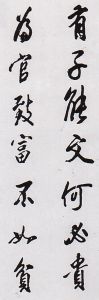 有子能文何必貴
為官致富不如貧